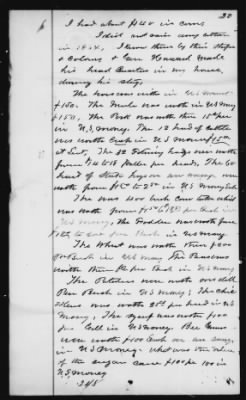 20
6 I had about $40 in corn
I did not raise any cotton
in 1864, I knew them by their stripes
& Colours & Gen Howard made
his head Quarters in my house,
during his stay
The horses was worth in US money
$150. The Mule was worth in US money
$150. The Pork was worth then 15¢ per
in U.S. money. The 12 head of Cattle
was worth Each in US money $15.00
at least, The 32 Fattening hogs was worth
from $ to 18 dollars per heads, The 60
head of Stock hogs on an average was
worth from to in US money Each
The was 1100 bush Corn taken which
was worth from per bush in
US money, The Fodder was worth from
to per in US money
The Wheat was worth then $200
Per Bush in US money The Peas was
worth then per Bush in US money
The Potatoes was worth one doll
Per Bush in US money, The chic
was worth 25¢ per head in US
money, The Syrup was worth $100
per Gall in US money. Bee Gums
was worth $400 Each on an average,
in US money what was the value
of the sugar cane $100 per 100 in
US money
248